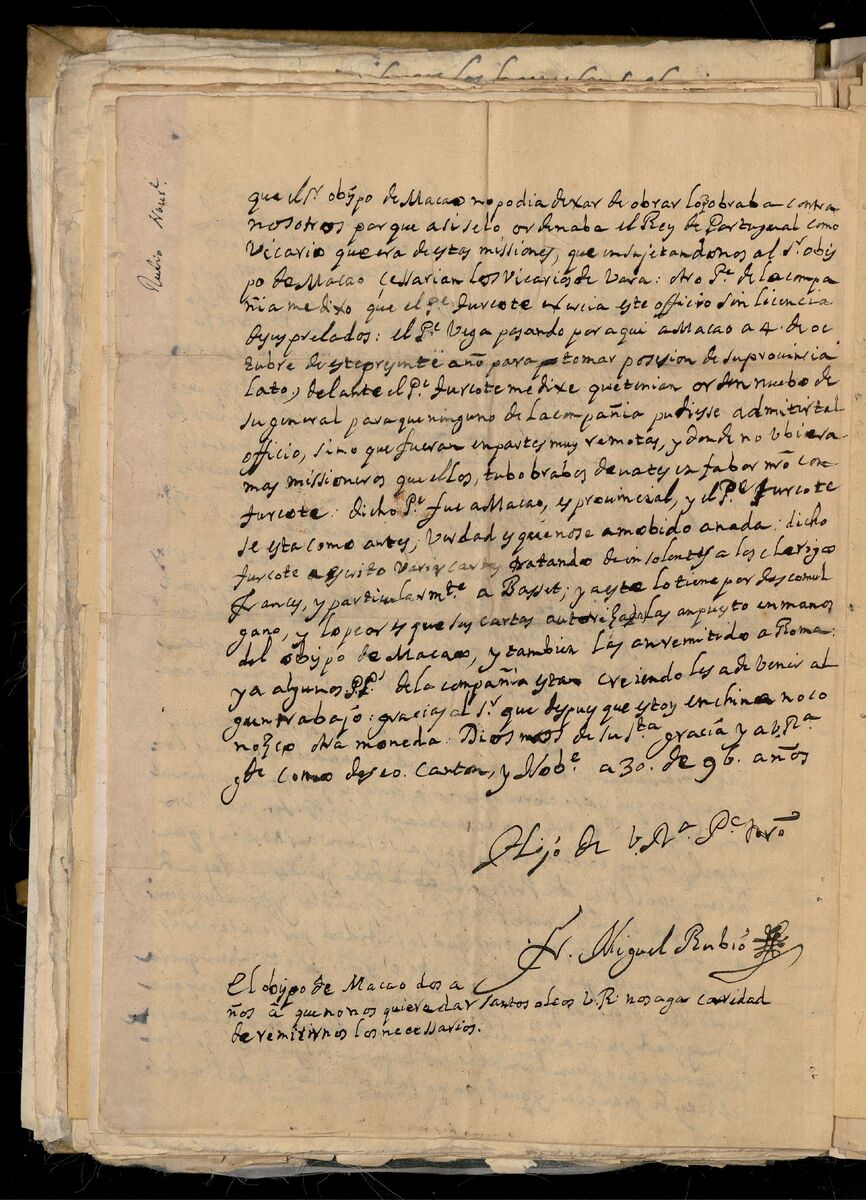 Rubio
que el Sr. obispo de Macao no podia dexar de obrar lo q̃ obraba contra
nosotros porque asi se lo ordenaba el Rey de Portugual como
Vicario que era de estas missiones, que en sujetandonos al Sr. obis
po de Macao cessarian los Vicarios de Vara: otro Pe. de la compa
ñia me dixo que el Pe. Turcote exercia este officio sin licencia
de sus prelados: el Pe. Vega pasando por aqui a Macao a 4. de oc
tubre de este presente año para tomar posesion de su provincia
lato, delante el Pe. Turcote me dixe que tenian orden nuebo de
su general para que ninguno de la compañia pudiesse admitir tal
officio, sino que fueran en partes muy remotas, y donde no ubiera
mas missioneros que ellos, tubo brabos devates en fabor mrõ con
Turcote: dicho Pe. fue a Macao, es provincial, y el Pe. Turcote
se esta como antes; Verdad es que no se a mobido a nada: dicho
Turcote a escrito varias cartas tratando de insolentes a los clerigos
Frances, y particularmte. a Basset; y a este lo tiene por descomul
gano, y lo peor es que sus cartas autorizadas las an puesto en manos
del obispo de Macao, y tambien las an remitido a Roma:
y a algunos P.Ps. de la compañia estan creiendo les a de venir al
gun trabajo: gracias al Sr. que despues que estoy en china no co
nozco otra moneda. Dios nos de su sta. gracia y a V. Ra.
gde. como deseo. Canton, y Nobe. a 30. de 96. años
Hijo de V. Ra. Pe. nro
Fr. Miguel Rubió
El obispo de Macao dos a
ños à que no nos quiere dar santos oleos V.R. nos aga caridad
de remitirnos los necessarios.